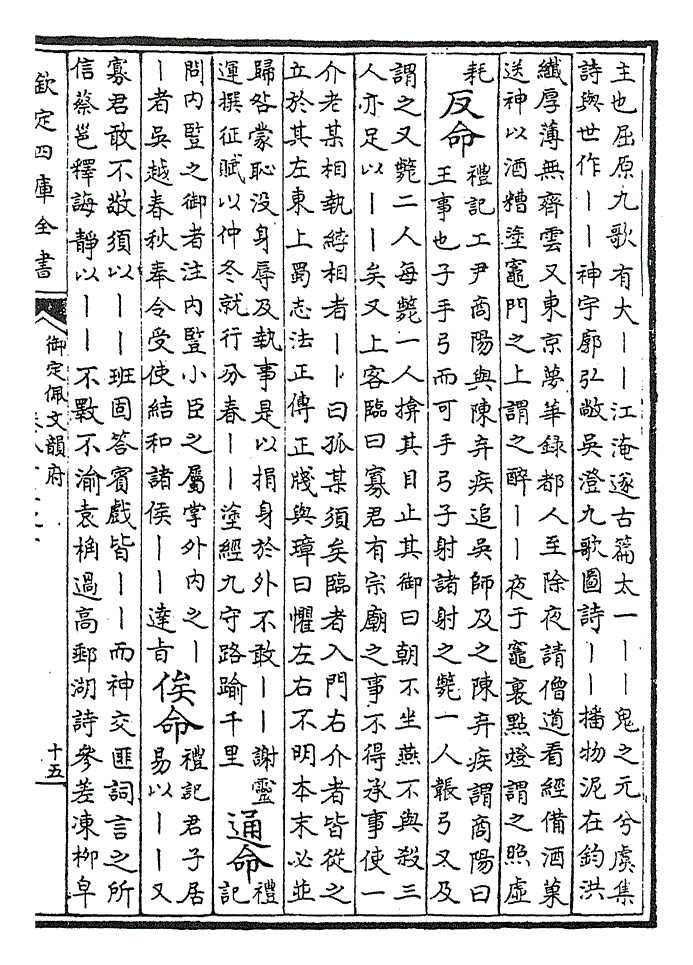 主也屈原九歌有大丨丨江淹遂古篇太一丨丨鬼之元兮虞集
詩與世作丨丨神宇廓弘敞吳澄九歌圖詩丨丨播物泥在鈞洪
纖厚薄無齊雲又東京夢華録都人至除夜請僧道看經備酒菓
送神以酒糟塗竈門之上謂之醉丨丨夜于竈裏點燈謂之照虛
耗
反命
禮記工尹商陽與陳弃疾追吳師及之陳弃疾謂商陽曰
王事也子手弓而可手弓子射諸射之斃一人韔弓又及
謂之又斃二人每斃一人揜其目止其御曰朝不坐燕不與殺三
人亦足以丨丨矣又上客臨曰寡君有宗廟之事不得承事使一
介老某相執綍相者丨卜曰孤某須矣臨者入門右介者皆從之
立於其左東上蜀志法正傳正牋與璋曰懼左右不明本末必並
歸咎蒙恥没身辱及執事是以捐身於外不敢丨丨謝靈
運撰征賦以仲冬就行分春丨丨塗經九守路踰千里
通命
禮
記
問内豎之御者注内豎小臣之屬掌外内之丨
丨者吳越春秋奉令受使結和諸侯丨丨達㫖
俟命
禮記君子居
易以丨丨又
寡君敢不敬須以丨丨班固答賓戲皆丨丨而神交匪詞言之所
信蔡邕釋誨靜以丨丨不斁不渝袁桷過高郵湖詩參差凍柳皁
欽定四庫全書
御定佩文韻府
十五